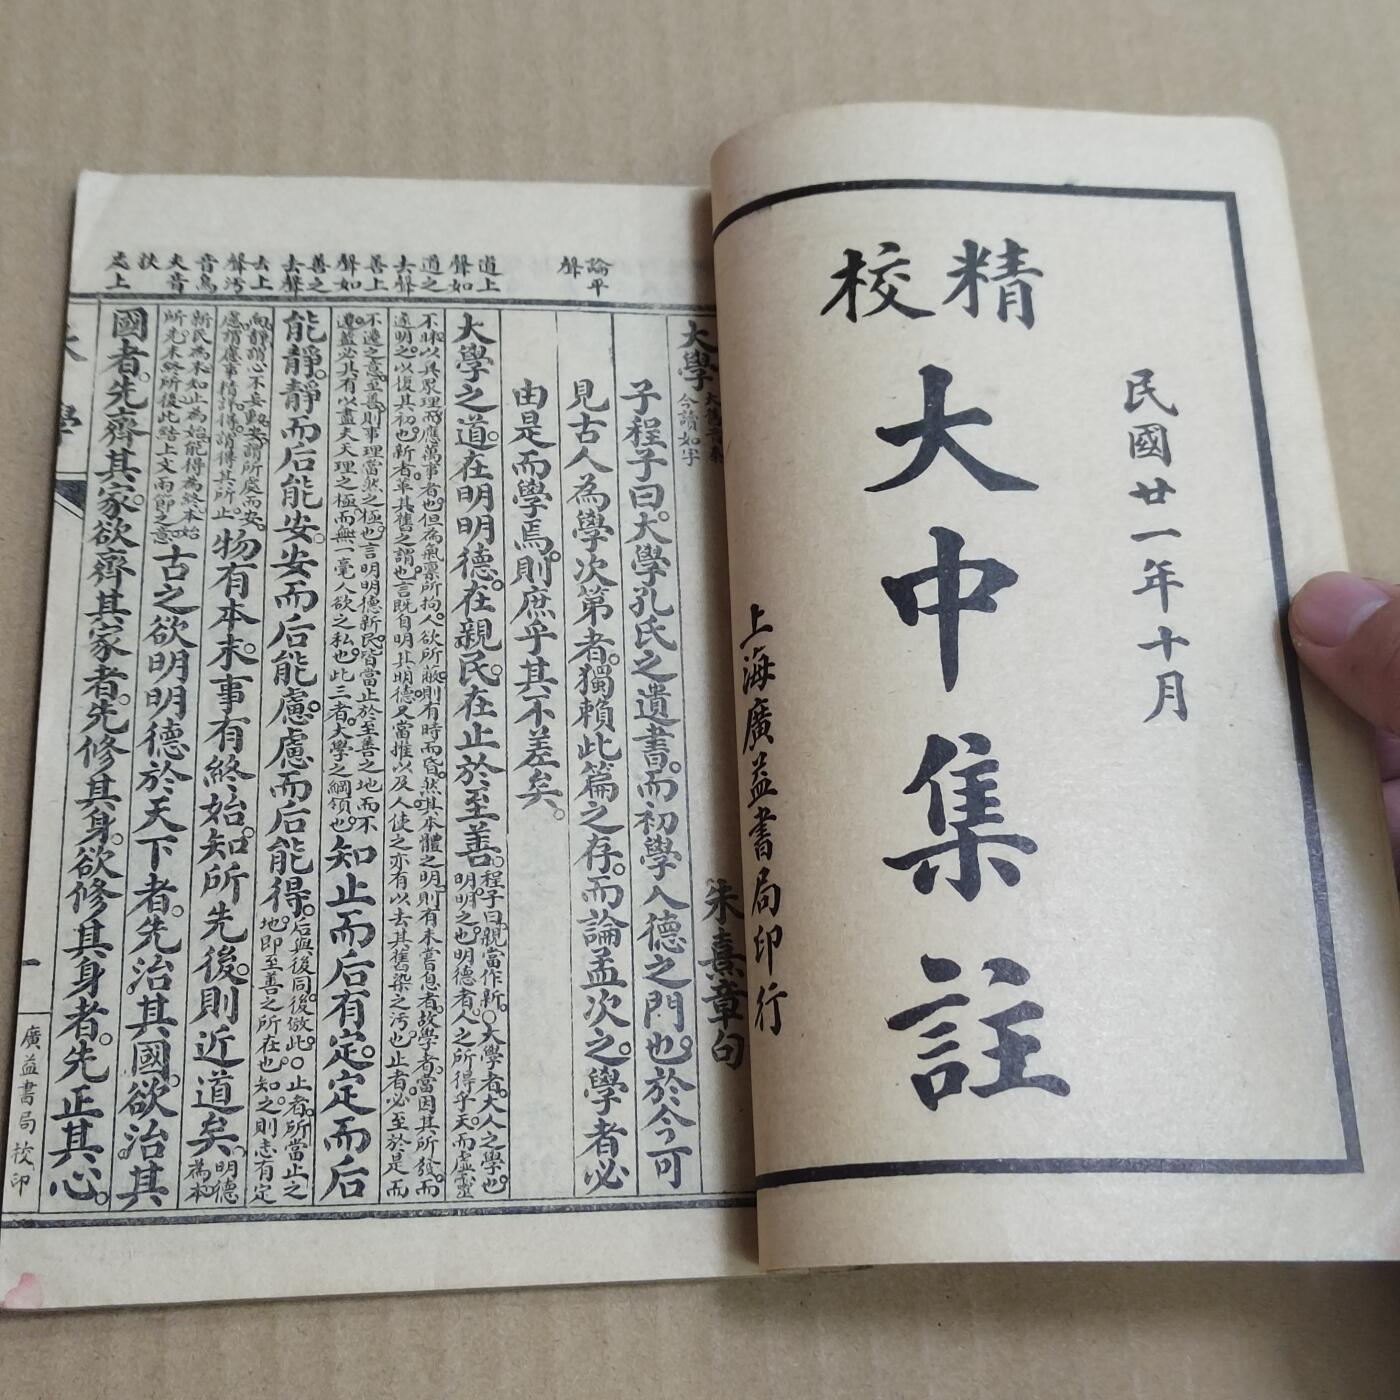 民國廿一年十月
精校
大中集註
上海廣益書局印行
論平聲
道上聲如道之去聲善上聲如善之去聲
去上聲污音烏夫音扶
大學
今讀如字
朱熹章句
子程子曰。大學孔氏之遺書。而初學入德之門也。於今可
見古人為學次第者。獨賴此篇之存。而論孟次之。學者必
由是而學焉。則庶乎其不差矣。
大學之道。在明明德。在親民。在止於至善。程子曰。親當作新。○大學者。大人之學也。明明之也。明德者。人之所得乎天。而虛靈
不昧。以具眾理而應萬事者也。但為氣稟所拘。人欲所蔽。則有時而昏。然其本體之明。則有未嘗息者。故學者。當因其所發。而
遂明之。以復其初也。新者。革其舊之謂也。言既自明其明德。又當推以及人。使之亦有以去其舊染之污也。止者。必至於是而
不遷之意。至善。則事理當然之極也。言明明德新民。皆當止於至善之地而不
遷。蓋必其有以盡夫天理之極。而無一毫人欲之私也。此三者。大學之綱領也。知止而后有定。定而后
能靜。靜而后能安。安而后能慮。慮而后能得。后與後同。後倣此。○止者。所當止之地。即至善之所在也。知之。則志有定
向。靜。謂心不妄動。安。謂所處而安。慮。謂慮事精詳。得。謂得其所止。物有本末。事有終始。知所先後。則近道矣。明德為本
新民為末。知止為始。能得為終。本始所先。末終所後。此結上文兩節之意。古之欲明明德於天下者。先治其國。欲治其
國者。先齊其家。欲齊其家者。先修其身。欲修其身者。先正其心。
大學
一
廣益書局校印